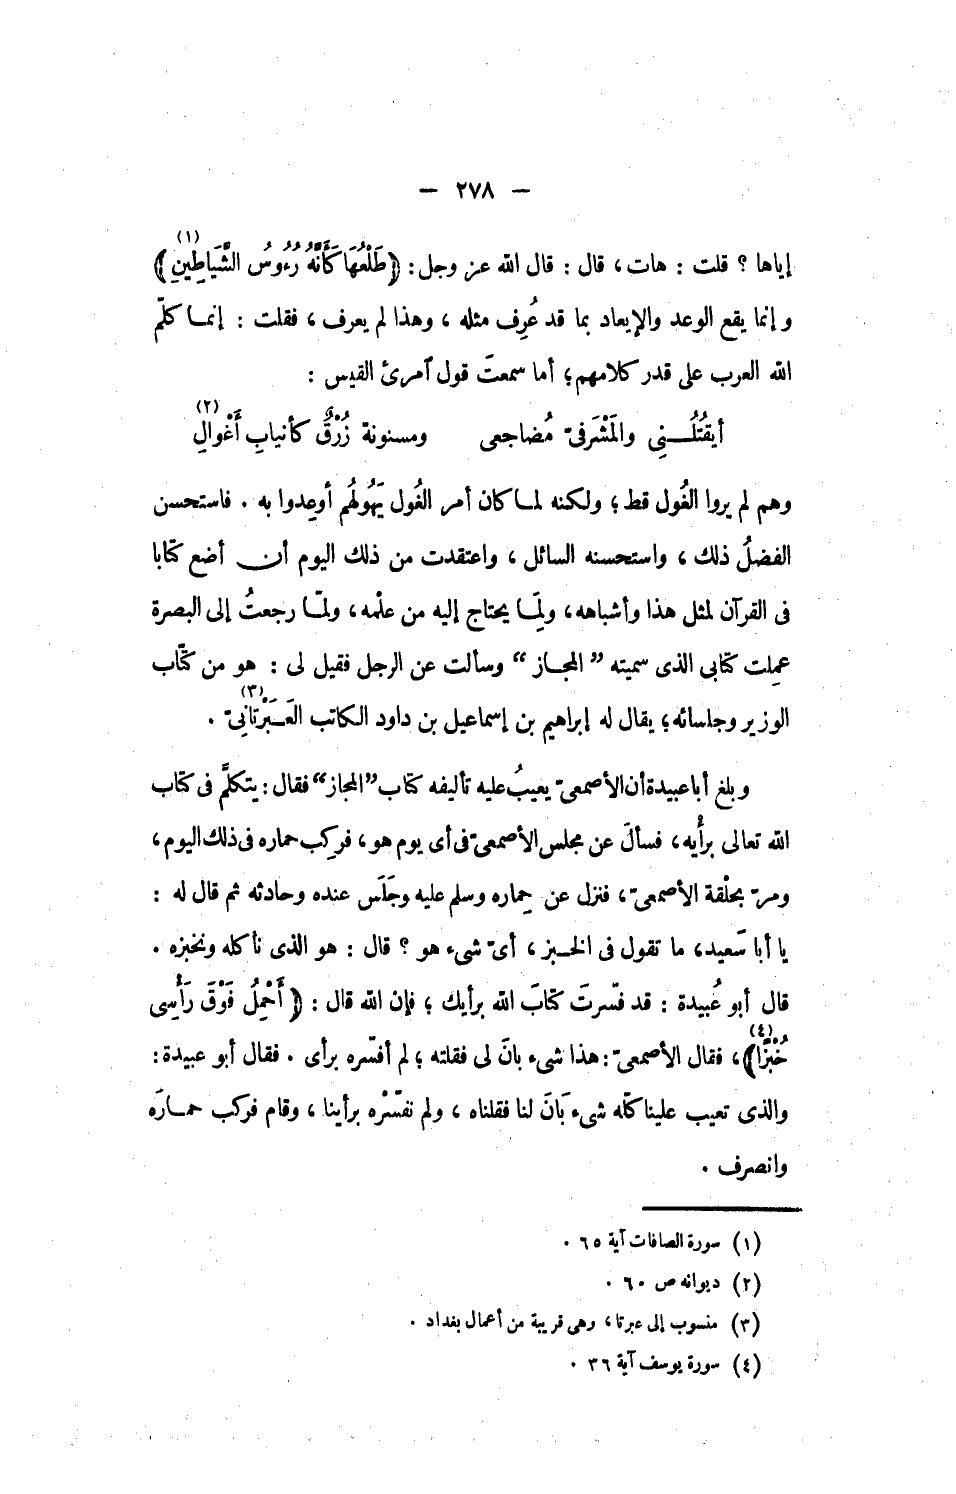 — ٢٧٨ —
إياها ؟ قلت : هات ، قال : قال الله عز وجل : ﴿ طَلْعُهَا كَأَنَّهُ رُءُوسُ الشَّيَاطِينِ ﴾(١)
و إنما يقع الوعد والإيعاد بما قد عُرِف مثله ، وهذا لم يعرف ، فقلت : إنمـا كلّم
الله العرب على قدر كلامهم ؛ أما سمعتَ قول ٱمرئ القيس :
أيقتُلُـــنِى والمَشْرَفىّ مُضاجعى ومسنونة زُرْقٌ كأنيابِ أَغْوالِ(٢)
وهم لم يروا الغُول قط ؛ ولكنه لمـا كان أمر الغُول يَهُولهُم أوعِدوا به . فاستحسن
الفضلُ ذلك ، واستحسنه السائل ، واعتقدت من ذلك اليوم أن أضع كتابا
فى القرآن لمثل هذا وأشباهه ، ولِمَـا يحتاج إليه من علْمه ، ولمّـا رجعتُ إلى البصرة
عمِلت كتابى الذى سميته “ المجـاز ” وسألت عن الرجل فقيل لى : هو من كتّاب
الوزير وجلسائه ؛ يقال له إبراهيم بن إسماعيل بن داود الكاتب العَـبَرْتانِىّ(٣) .
و بلغ أبا عبيدة أن الأصمعىّ يعيبُ عليه تأليفه كتاب “المجاز” فقال : يتكلَّم فى كتاب
الله تعالى برأيه ، فسألَ عن مجلس الأصمعىّ فى أى يوم هو ، فركِب حماره فى ذلك اليوم ،
ومرّ بحلْقة الأصمعىّ ، فنزل عن حِماره وسلم عليه وجَلَس عنده وحادثه ثم قال له :
يا أبا سَعيد ، ما تقول فى الخـبز ، أىّ شىء هو ؟ قال : هو الذى نأكله ونخبزه .
قال أبو عُبيدة : قد فسّرتَ كتابَ الله برأيك ؛ فإن الله قال : ﴿ أَحْمِلُ فَوْقَ رَأْسِى
خُبْزًا ﴾(٤) ، فقال الأصمعىّ : هذا شىء بانَ لى فقلته ؛ لم أفسّره برأى . فقال أبو عبيدة :
والذى تعيب علينا كلّه شىء بَانَ لنا فقلناه ، ولم نفسّرْه برأينا ، وقام فركب حمـارَه
وانصرف .
(١) سورة الصافات آية ٦٥ .
(٢) ديوانه ص ٦٠ .
(٣) منسوب إلى عبرتا ، وهى قريبة من أعمال بغداد .
(٤) سورة يوسف آية ٣٦ .